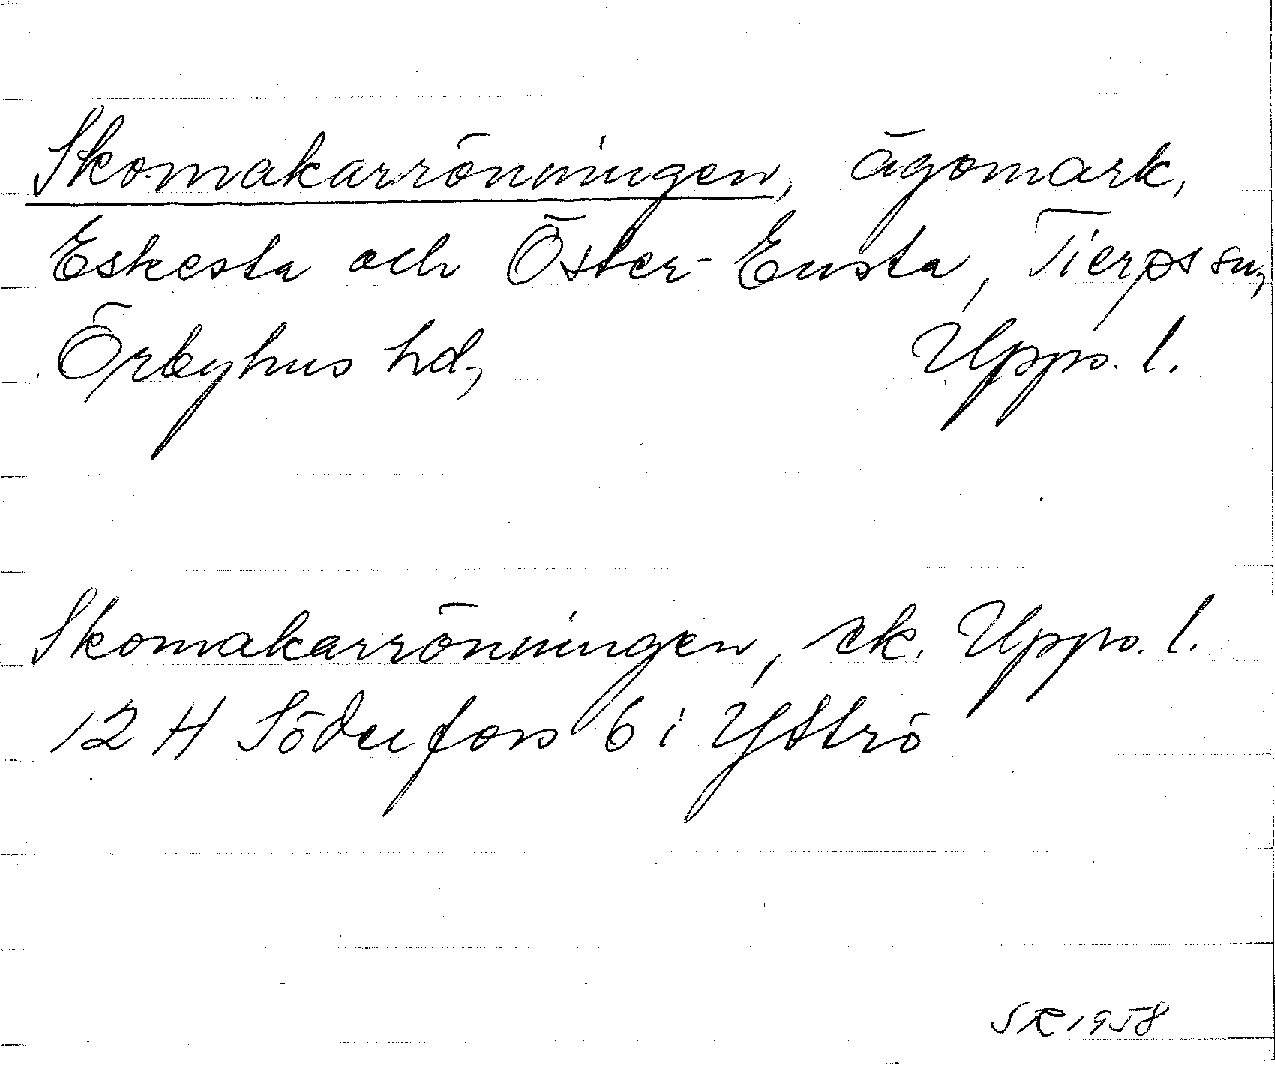 Skomakarrönningen, ägomark,
Eskesta och Öster-Ensta, Tierps sn,
Örbyhus hd, Upps. l.
Skomakarrönningen, ek. Upps. l.
12 H Söderfors 6 i Yttrö
SR 1958